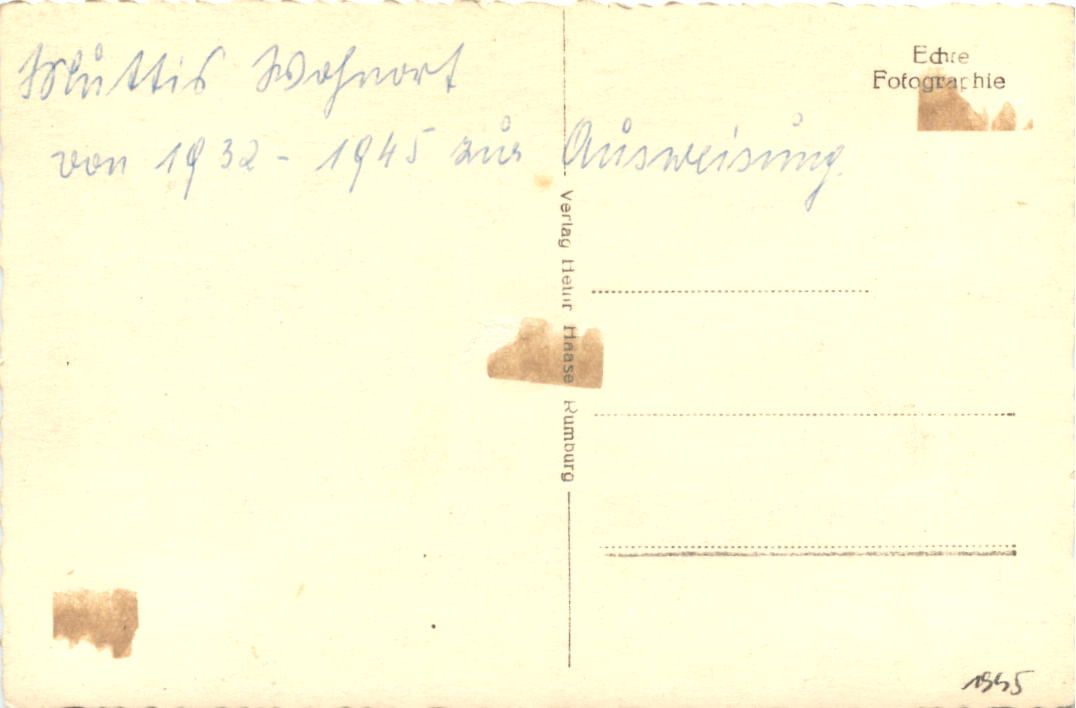 Muttis Wohnort
von 1932 - 1945 zur Ausweisung.
Echte
Fotographie
Verlag Heinr Haase Rumburg
1945